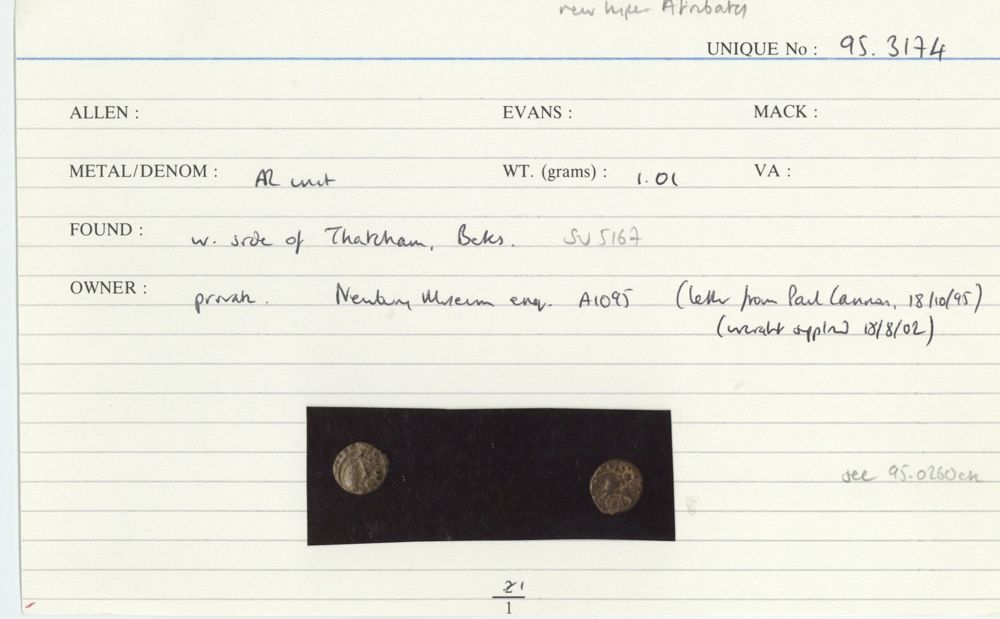 new type Atrebates
UNIQUE No : 95.3174
ALLEN : EVANS : MACK :
METAL/DENOM : AR unit WT. (grams) : 1.01 VA :
FOUND : w. side of Thatcham, Berks. SU 5167
OWNER : private. Newbury Museum enq. A1095 (letter from Paul Cannon, 18/10/95)
(weight supplied 18/8/02)
see 95.0260
1
1